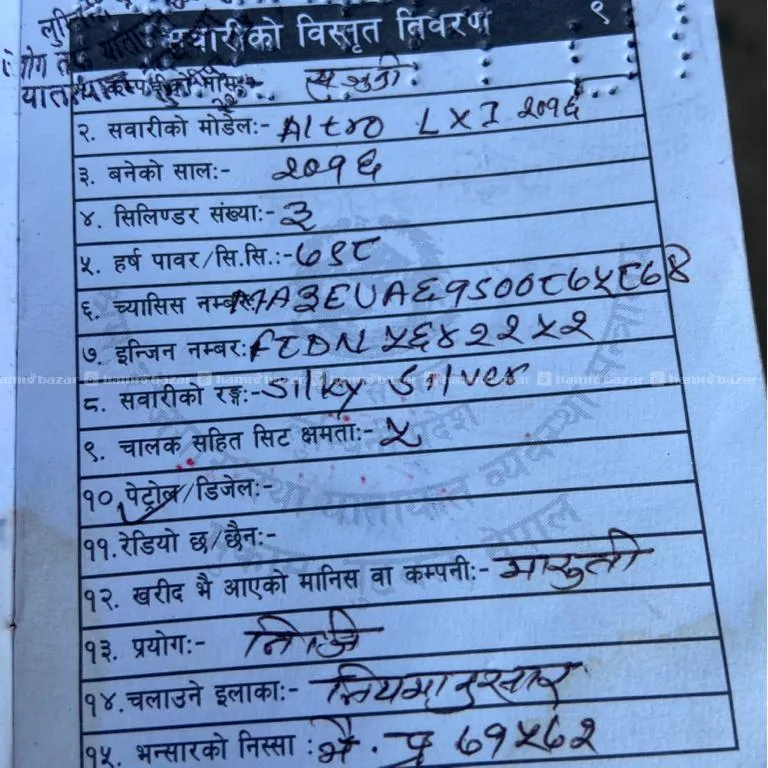 सवारीको विस्तृत विवरण
१
२. सवारीको मोडेल:- Alto LXI २०१६
३. बनेको साल:- २०१६
४. सिलिण्डर संख्या:- ३
५. हर्ष पावर/सि.सि.:- ७९८
६. च्यासिस नम्बर: MA3EUA६१S००८७५८७४
७. इन्जिन नम्बर: F८DN ५६४२२५२
hamrobazar hamrobazar hamrobazar hamrobazar hamrobazar hamrobazar
८. सवारीको रङ्ग:- Silky Silver
९. चालक सहित सिट क्षमता:- ५
१०. पेट्रोल/डिजेल:-
११. रेडियो छ/छैन:-
१२. खरीद भै आएको मानिस वा कम्पनी:- मारुती
१३. प्रयोग:- निजी
१४. चलाउने इलाका:- नियमानुसार
१५. भन्सारको निस्सा : भै. प्र ७१५७२